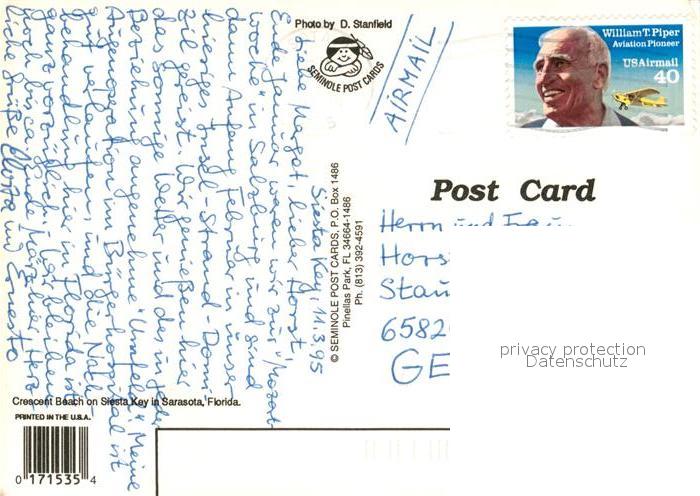 Photo by D. Stanfield
SEMINOLE POST CARDS
AIRMAIL
William T. Piper
Aviation Pioneer
USAirmail
40
Post Card
Herrn und Frau
Hors
Stau
6582
GE
privacy protection
Datenschutz
© SEMINOLE POST CARDS, P.O. Box 1486
Pinellas Park, FL 34664-1486
Ph. (813) 392-4591
Siesta Key, 11.3.95
Liebe Margot, lieber Horst,
Ende Januar waren wir zur "Mozart
woche" in Salzburg und sind
dann Anfang Februar in unser
hiesiges Insel-Strand-Domi
zil gereist. Wir genießen hier
das sonnige Wetter und das in jeder
Beziehung angenehme "Umfeld". Meine
Augenoperation im Bürgerhospital ist
gut verlaufen, und die Nach
behandlung hier in Florida ist
ganz vorzüglich. Wir bleiben
noch bis Ende März hier. Herz
liche Grüße
und Ernesto
Crescent Beach on Siesta Key in Sarasota, Florida.
PRINTED IN THE U.S.A.
0 171535 4